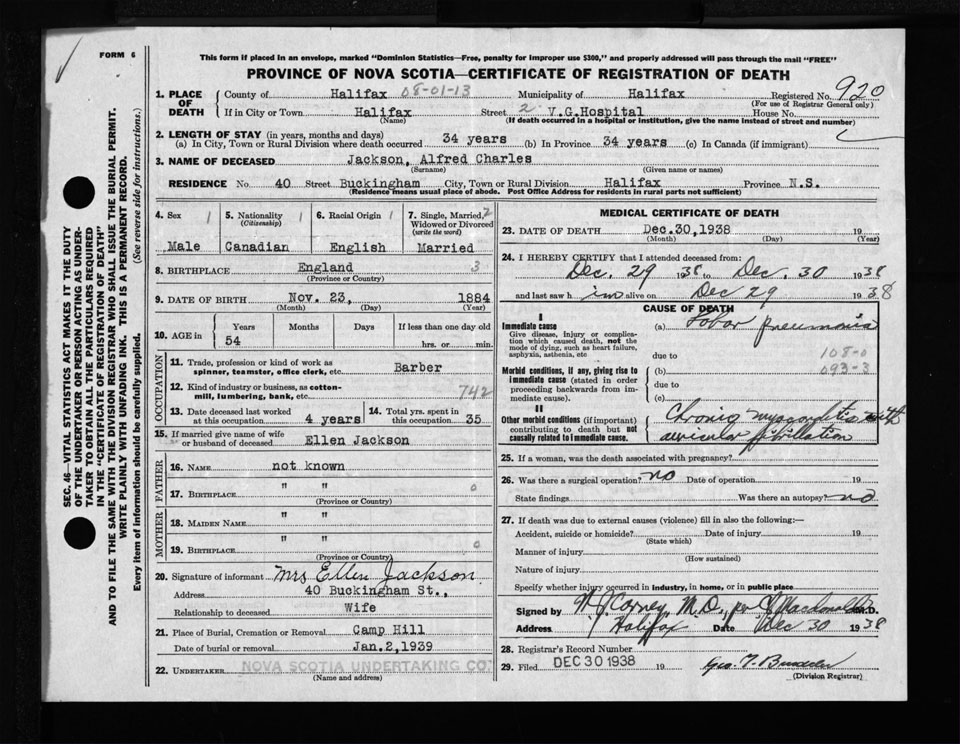 FORM 6
This form if placed in an envelope, marked "Dominion Statistics—Free, penalty for improper use $300," and properly addressed will pass through the mail "FREE"
PROVINCE OF NOVA SCOTIA—CERTIFICATE OF REGISTRATION OF DEATH
SEC. 46—VITAL STATISTICS ACT MAKES IT THE DUTY
OF THE UNDERTAKER OR PERSON ACTING AS UNDER-
TAKER TO OBTAIN ALL THE PARTICULARS REQUIRED
IN THE "CERTIFICATE OF REGISTRATION OF DEATH"
AND TO FILE THE SAME WITH THE DIVISION REGISTRAR WHO SHALL ISSUE THE BURIAL PERMIT.
WRITE PLAINLY WITH UNFADING INK. THIS IS A PERMANENT RECORD.
Every item of information should be carefully supplied. (See reverse side for instructions.)
1. PLACE OF DEATH County of Halifax 08-01-13 Municipality of Halifax Registered No. 920
(For use of Registrar General only)
If in City or Town Halifax Street 2 V.G.Hospital House No.
(Name) (If death occurred in a hospital or institution, give the name instead of street and number)
2. LENGTH OF STAY (in years, months and days)
(a) In City, Town or Rural Division where death occurred 34 years (b) In Province 34 years (c) In Canada (if immigrant)
3. NAME OF DECEASED Jackson, Alfred Charles
(Surname) (Given name or names)
RESIDENCE No. 40 Street Buckingham City, Town or Rural Division Halifax Province N.S.
(Residence means usual place of abode. Post Office Address for residents in rural parts not sufficient)
4. Sex 1 5. Nationality 1 6. Racial Origin 1 7. Single, Married, 2
(Citizenship) Widowed or Divorced
(write the word)
Male Canadian English Married
8. BIRTHPLACE England 3
(Province or Country)
9. DATE OF BIRTH Nov. 23, 1884
(Month) (Day) (Year)
10. AGE in Years Months Days If less than one day old
54 hrs. or min.
OCCUPATION
11. Trade, profession or kind of work as
spinner, teamster, office clerk, etc. Barber
12. Kind of industry or business, as cotton-
mill, lumbering, bank, etc. 742
13. Date deceased last worked 14. Total yrs. spent in
at this occupation 4 years this occupation 35
15. If married give name of wife
or husband of deceased Ellen Jackson
FATHER
16. NAME not known
17. BIRTHPLACE " " 0
(Province or Country)
MOTHER
18. MAIDEN NAME " "
19. BIRTHPLACE " " 0
(Province or Country)
20. Signature of informant Mrs Ellen Jackson
Address 40 Buckingham St.,
Relationship to deceased Wife
21. Place of Burial, Cremation or Removal Camp Hill
Date of burial or removal Jan.2,1939
22. UNDERTAKER NOVA SCOTIA UNDERTAKING CO
(Name and address)
MEDICAL CERTIFICATE OF DEATH
23. DATE OF DEATH Dec.30,1938 19
(Month) (Day) (Year)
24. I HEREBY CERTIFY that I attended deceased from:
Dec. 29 1938 to Dec. 30 1938
and last saw h im alive on Dec 29 1938
CAUSE OF DEATH
I
Immediate cause (a) Lobar pneumonia
Give disease, injury or complica-
tion which caused death, not the
mode of dying, such as heart failure,
asphyxia, asthenia, etc due to 108-0
Morbid conditions, if any, giving rise to (b) 093-3
immediate cause (stated in order due to
proceeding backwards from im-
mediate cause). (c)
II
Other morbid conditions (if important) Chronic myocarditis with
contributing to death but not auricular fibrillation
causally related to immediate cause.
25. If a woman, was the death associated with pregnancy?
26. Was there a surgical operation? no Date of operation 19
State findings Was there an autopsy? no
27. If death was due to external causes (violence) fill in also the following:—
Accident, suicide or homicide? Date of injury 19
(State which)
Manner of injury
(How sustained)
Nature of injury
Specify whether injury occurred in industry, in home, or in public place
Signed by Carney M.D., per Macdonald M.D.
Address Halifax Date Dec 30 1938
28. Registrar's Record Number
29. Filed DEC 30 1938 19 Geo.
(Division Registrar)